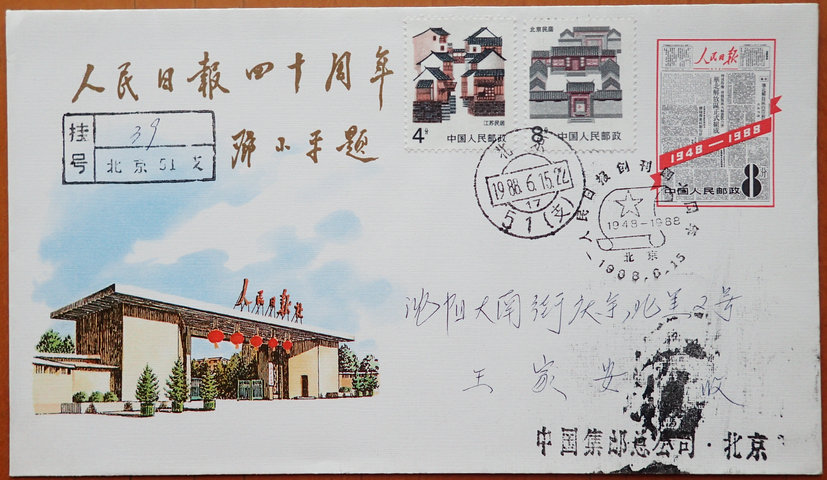 人民日报四十周年
邓小平题
挂号
39
北京51支
江苏民居
4分
中国人民邮政
北京民居
8分
中国人民邮政
人民日报
1948—1988
中国人民邮政
8分
北京
1988.6.15.22
17
51(支)
人民日报创刊四十周年
1948-1988
北京
1988.6.15
人民日报社
大南街
王家安 收
中国集邮总公司·北京